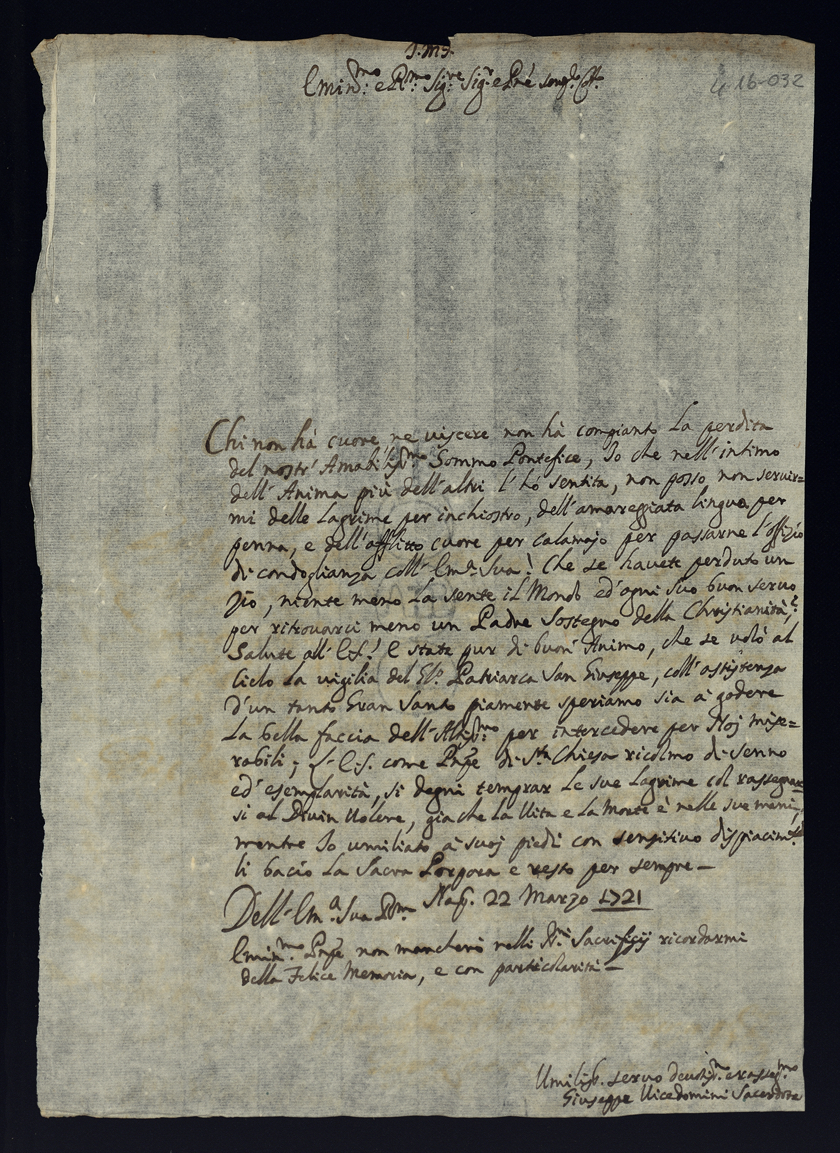 J.M.J.
Emin.mo e R.mo Sig.re Sig.r e Pñe
4-16-032
Chi non hà cuore ne viscere non hà compianto La perdita
del nostr' Amabiliss.mo Sommo Pontefice, Io che nell'intimo
dell'Anima più dell'altri l'hò sentita, non posso non servir=
mi delle Lagrime per inchiostro, dell'amareggiata lingua per
penna, e dell'afflitto cuore per calamajo per passarne l'offizio
di condoglianza coll'Em.a Sua! Che se havete perduto un
Zio, niente meno La sente il Mondo ed'ogni suo buon servo
per ritrovarci meno un Padre Sostegno della Christianità,
Salute all'E.S.! E state pur di buon'Animo, che se volò al
Cielo La vigilia del Patriarca San Giuseppe, coll'assistenza
d'un tanto Gran Santo piamente speriamo sia à godere
La bella faccia dell'Altiss.mo per intercedere per Noj mise=
rabili; L'E.S. come Pñpe di S.ta Chiesa ricolmo di senno
ed'esemplarità, si degni temprar Le sue Lagrime col rassegnar=
si al Divin Volere, gia che La Vita e La Morte è nelle sue mani,
mentre Io umiliato a' suoj piedi con sensitivo dispiacim.to
li bacio La Sacra Porpora e resto per sempre —
Dell'Em.a Sua R.ma Nap. 22 Marzo 1721
Emin.mo Pñpe non mancherò nelli Sacrificij ricordarmi
della Felice Memoria, e con particolarità —
Umiliss. servo devotiss.mo e rasseg.mo
Giuseppe Vicedomini Sacerdote